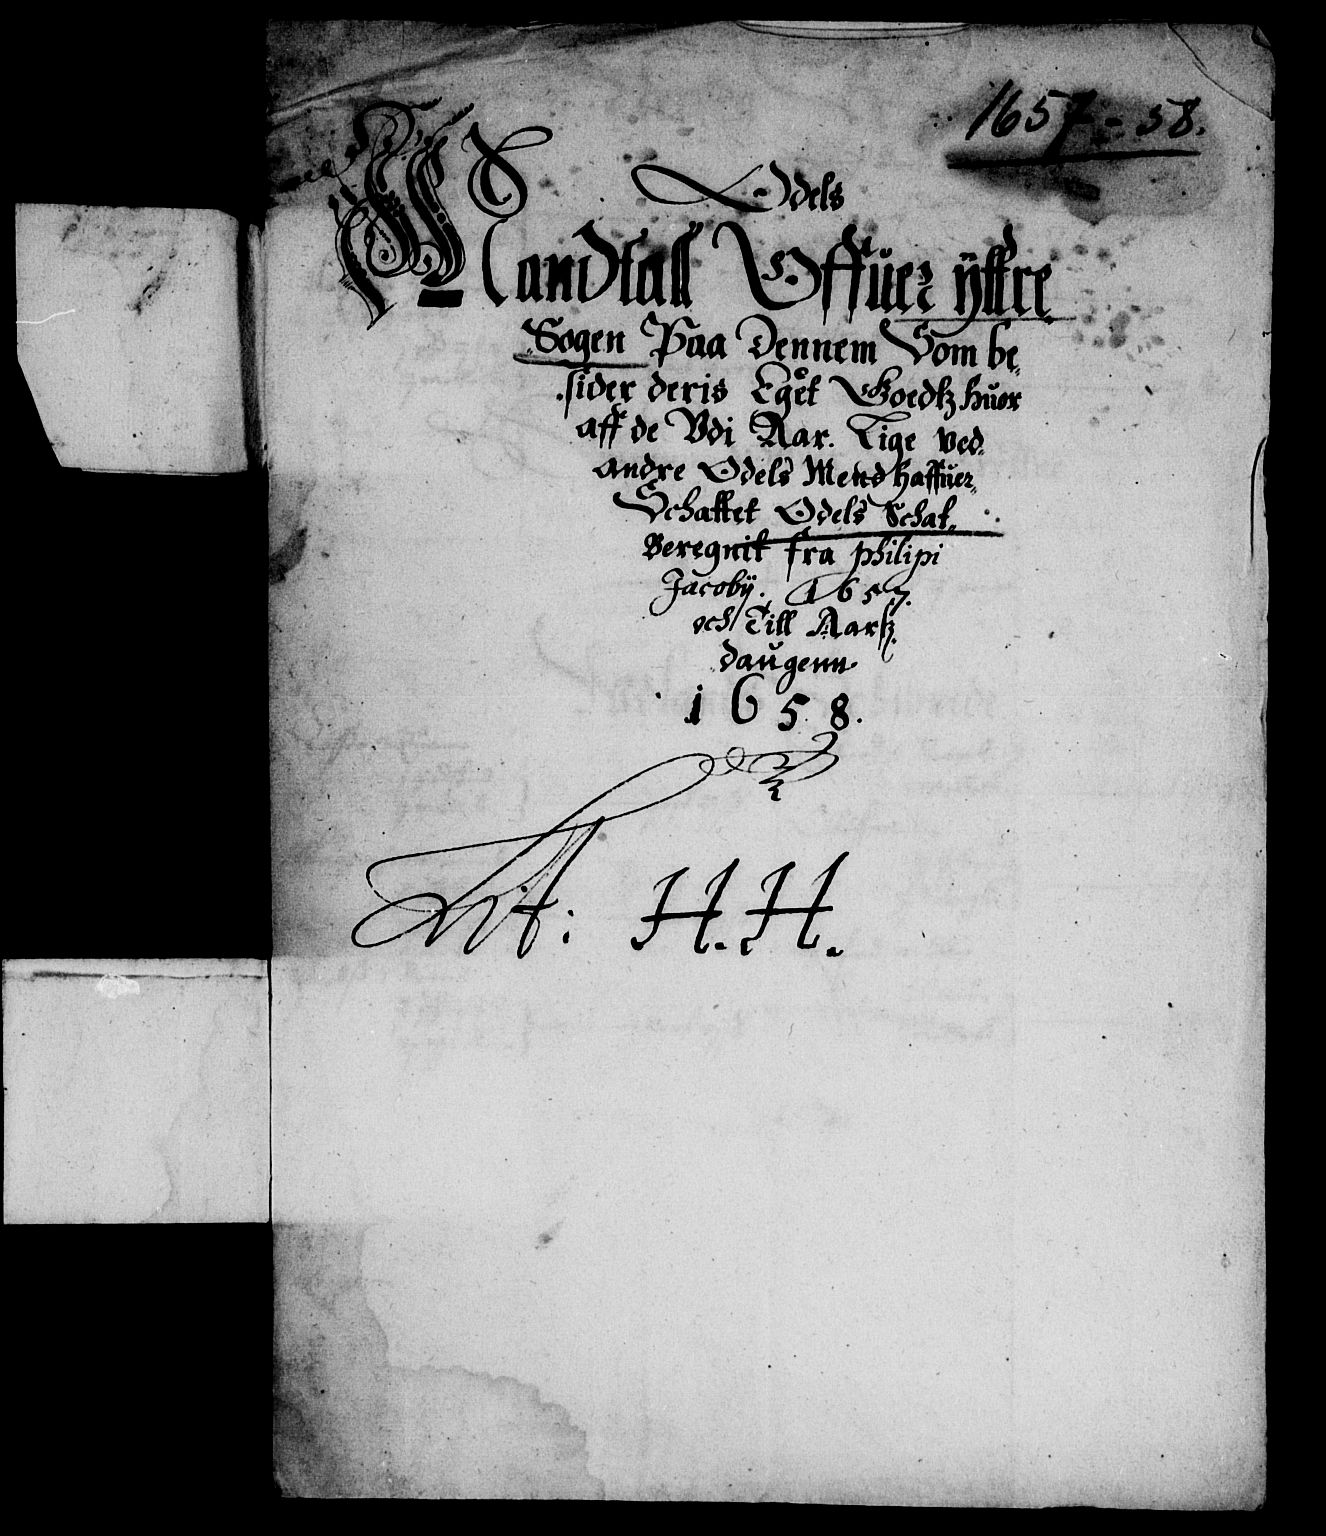 1657 - 58.
Odels
Mandtall Offuer ÿttre
Sogen Paa Dennem Som be,
sider deris Eget Goedtz huer
aff de Udi Aar. Lige ved,
andre Odels Mend haffuer,
Schattet Odels Schat,
Beregnit fra philipi
Jacobÿ. 1657.
och Till Aarsz
daugenn.
1658.
Lit: H.H.